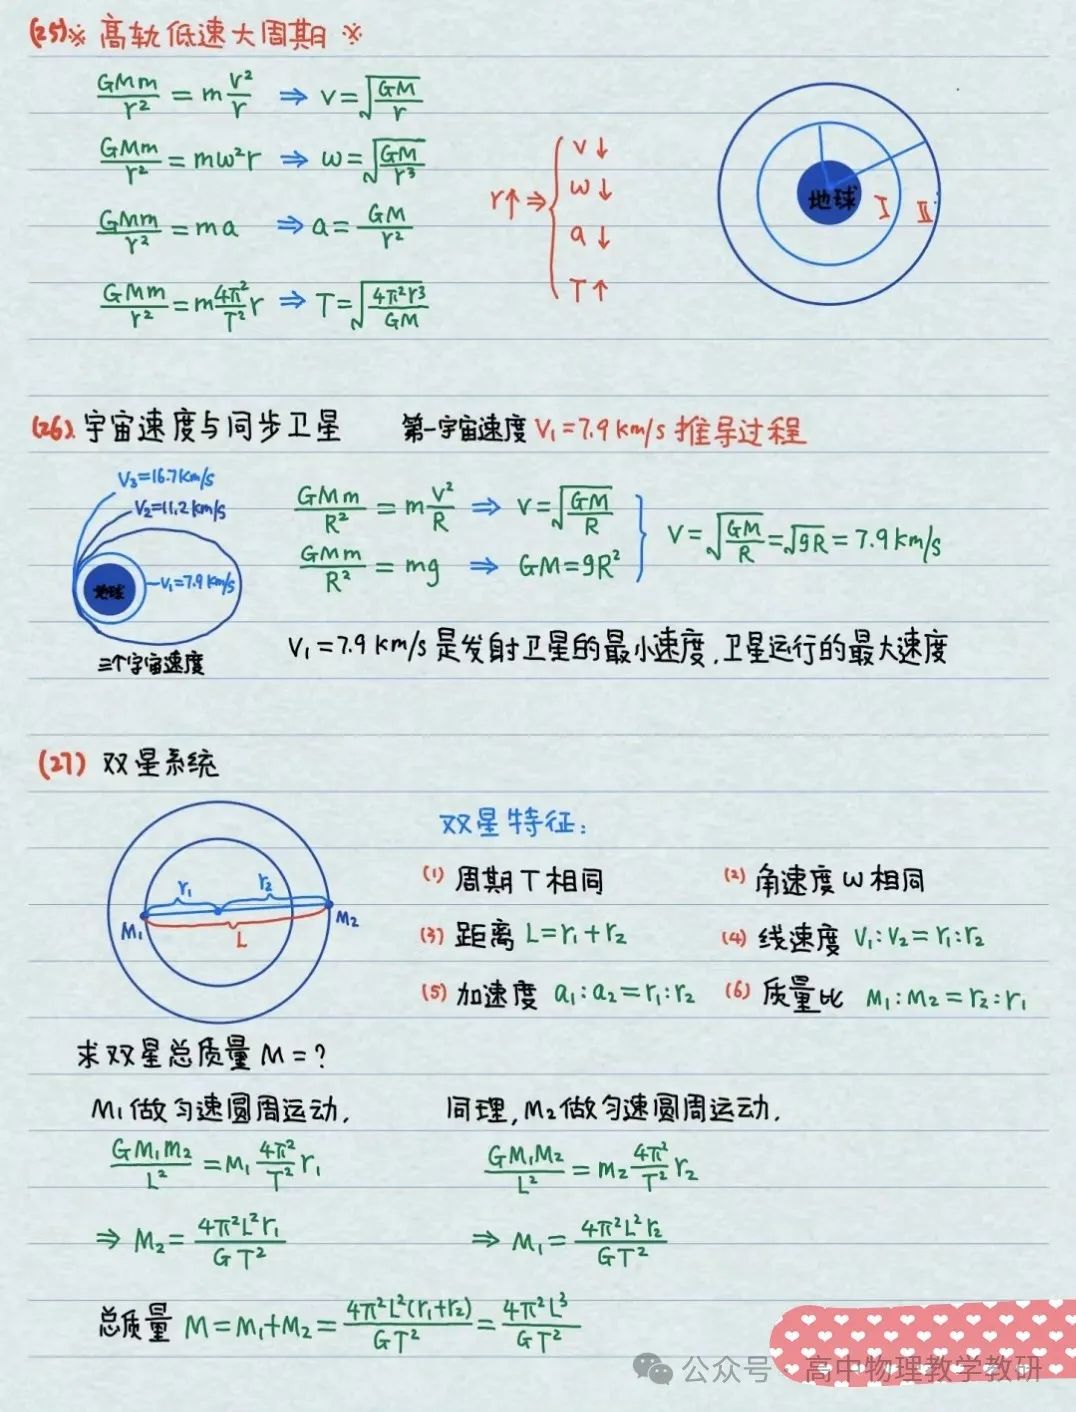 (25)※ 高轨低速大周期 ※
GMm/r² = m v²/r ⇒ v=√(GM/r)
GMm/r² = mω²r ⇒ ω=√(GM/r³)
GMm/r² = ma ⇒ a=GM/r²
GMm/r² = m 4π²/T² r ⇒ T=√(4π²r³/GM)
r↑⇒{
v↓
ω↓
a↓
T↑
地球 I II
(26) 宇宙速度与同步卫星 第一宇宙速度 V₁=7.9km/s 推导过程
V₃=16.7km/s
V₂=11.2km/s
V₁=7.9km/s
地球
三个宇宙速度
GMm/R² = m v²/R ⇒ v=√(GM/R)
GMm/R² = mg ⇒ GM=gR²
} v=√(GM/R)=√gR=7.9km/s
V₁=7.9km/s是发射卫星的最小速度,卫星运行的最大速度
(27) 双星系统
r₁ r₂
M₁ L M₂
双星特征:
(1) 周期T相同 (2) 角速度ω相同
(3) 距离 L=r₁+r₂ (4) 线速度 V₁:V₂=r₁:r₂
(5) 加速度 a₁:a₂=r₁:r₂ (6) 质量比 M₁:M₂=r₂:r₁
求双星总质量M=?
M₁做匀速圆周运动, 同理,M₂做匀速圆周运动,
GM₁M₂/L² = M₁ 4π²/T² r₁ GM₁M₂/L² = M₂ 4π²/T² r₂
⇒ M₂=4π²L²r₁/GT² ⇒ M₁=4π²L²r₂/GT²
总质量 M=M₁+M₂=4π²L²(r₁+r₂)/GT²=4π²L³/GT²
公众号·高中物理教学教研